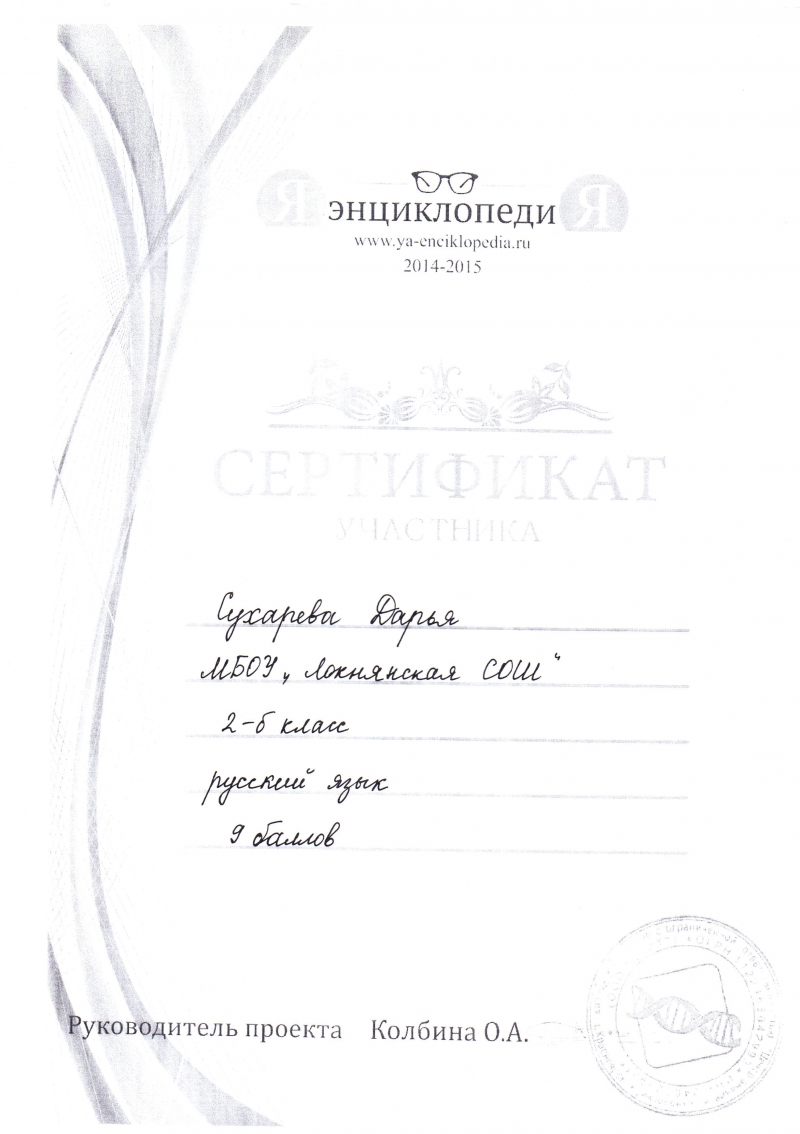 Я ЭНЦИКЛОПЕДИ Я
www.ya-enciklopedia.ru
2014-2015
СЕРТИФИКАТ
УЧАСТНИКА
Сухарева Дарья
МБОУ „Локнянская СОШ“
2-б класс
русский язык
9 баллов
Руководитель проекта Колбина О.А.